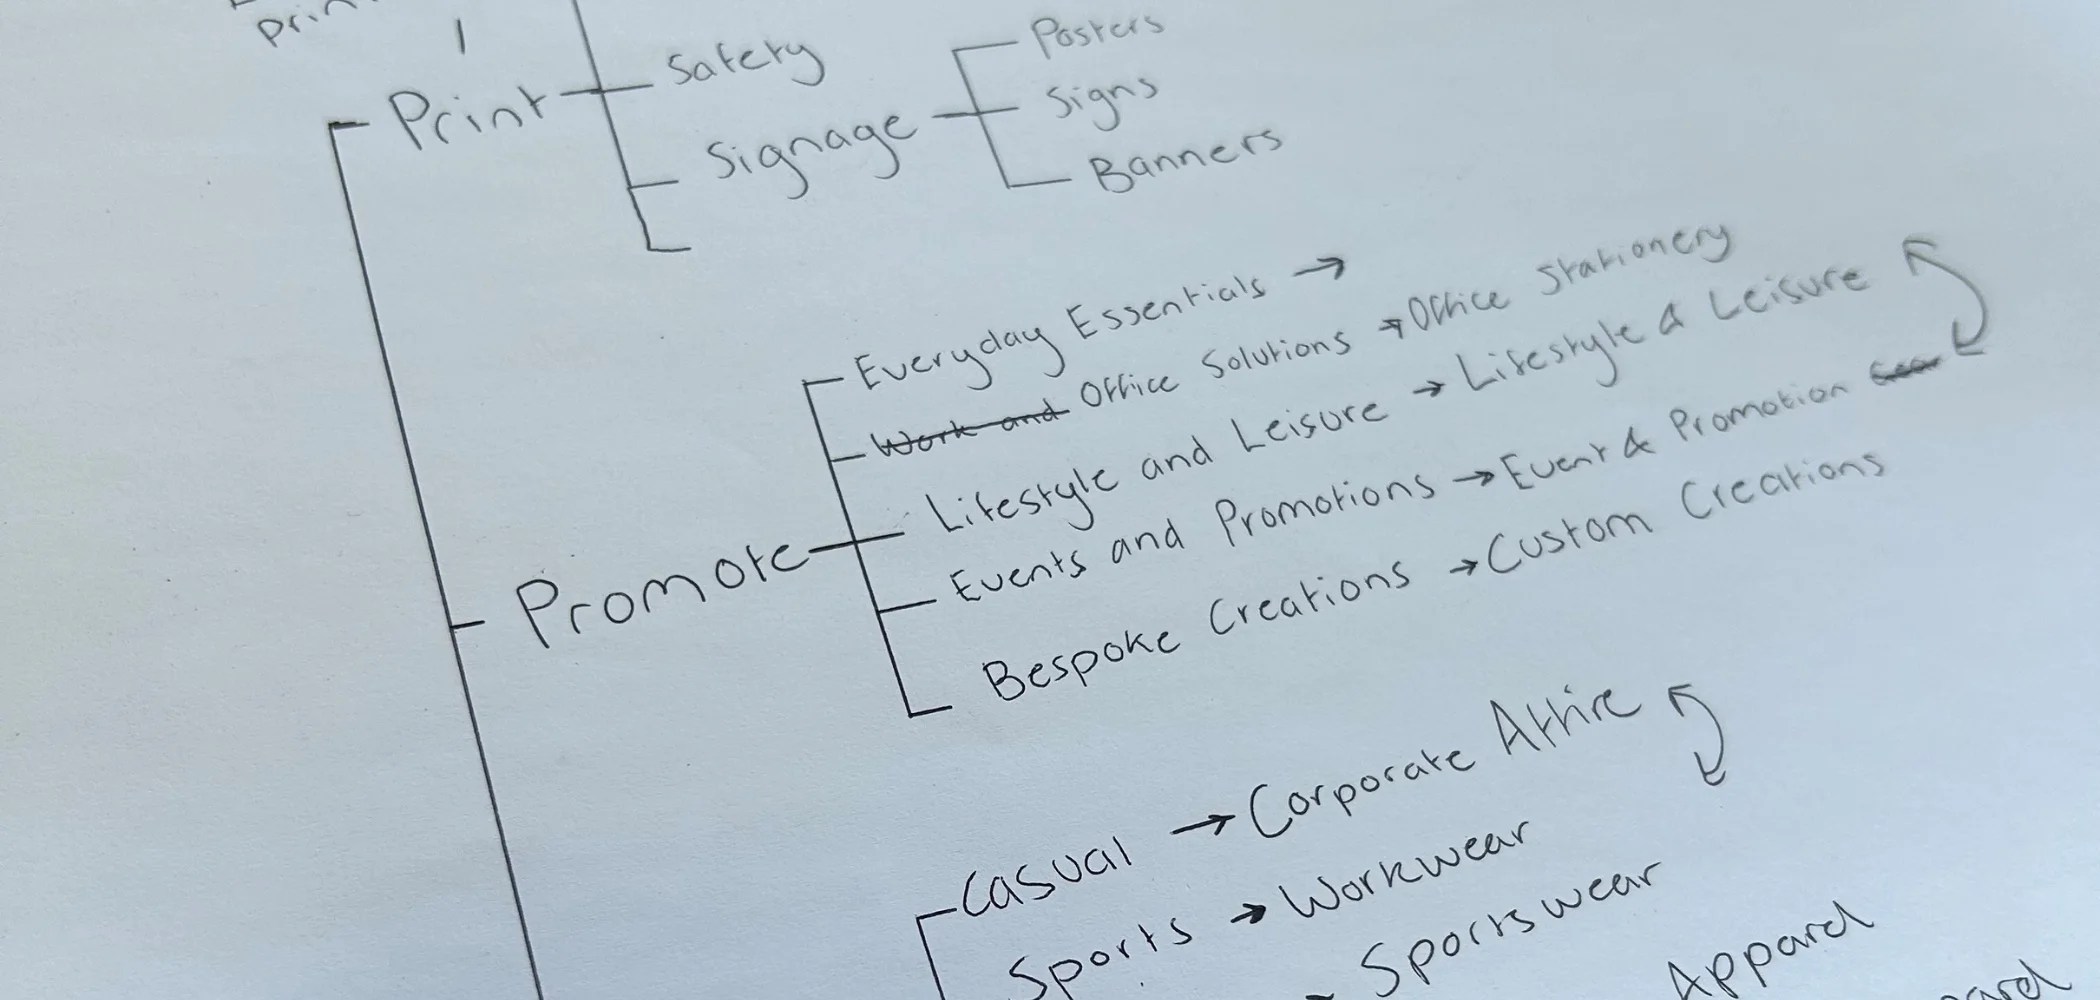 Print
Safety
Signage
Posters
Signs
Banners
Promote
Everyday Essentials →
Work and Office Solutions → Office Stationery
Lifestyle and Leisure → Lifestyle & Leisure
Events and Promotions → Event & Promotion
Bespoke Creations → Custom Creations
Casual → Corporate Attire
Sports → Workwear
Sportswear